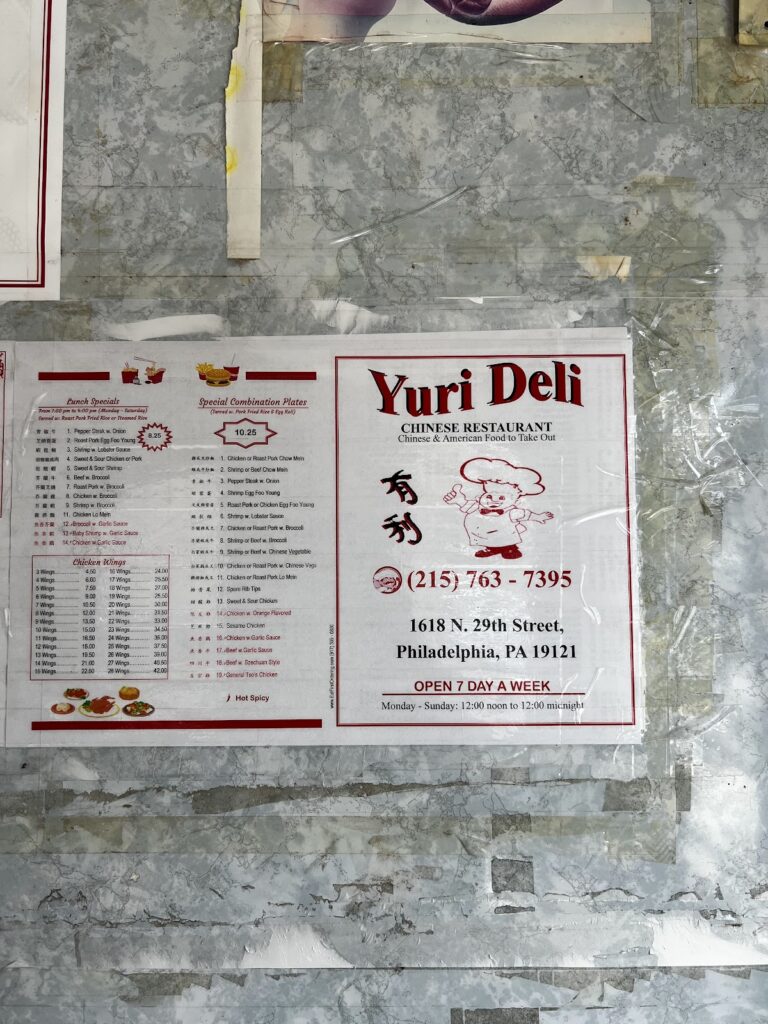 Lunch Specials
From 1:00 pm to 4:00 pm (Monday - Saturday)
Served w. Roast Pork Fried Rice or Steamed Rice
8.25
1. Pepper Steak w. Onion
2. Roast Pork Egg Foo Young
3. Shrimp w. Lobster Sauce
4. Sweet & Sour Chicken or Pork
5. Sweet & Sour Shrimp
6. Beef w. Broccoli
7. Roast Pork w. Broccoli
8. Chicken w. Broccoli
9. Shrimp w. Broccoli
11. Chicken Lo Mein
12. Broccoli w. Garlic Sauce
13. Baby Shrimp w. Garlic Sauce
14. Chicken w. Garlic Sauce
Chicken Wings
3 Wings 4.50 16 Wings 24.00
4 Wings 6.00 17 Wings 25.50
5 Wings 7.50 18 Wings 27.00
6 Wings 9.00 19 Wings 28.50
7 Wings 10.50 20 Wings 30.00
8 Wings 12.00 21 Wings 31.50
9 Wings 13.50 22 Wings 33.00
10 Wings 15.00 23 Wings 34.50
11 Wings 16.50 24 Wings 36.00
12 Wings 18.00 25 Wings 37.50
13 Wings 19.50 26 Wings 39.00
14 Wings 21.00 27 Wings 40.50
15 Wings 22.50 28 Wings 42.00
Special Combination Plates
(Served w. Pork Fried Rice & Egg Roll)
10.25
1. Chicken or Roast Pork Chow Mein
2. Shrimp or Beef Chow Mein
3. Pepper Steak w. Onion
4. Shrimp Egg Foo Young
5. Roast Pork or Chicken Egg Foo Young
6. Shrimp w. Lobster Sauce
7. Chicken or Roast Pork w. Broccoli
8. Shrimp or Beef w. Broccoli
9. Shrimp or Beef w. Chinese Vegetable
10. Chicken or Roast Pork w. Chinese Vege
11. Chicken or Roast Pork Lo Mein
12. Spare Rib Tips
13. Sweet & Sour Chicken
14. Chicken w. Orange Flavored
15. Sesame Chicken
16. Chicken w. Garlic Sauce
17. Beef w. Garlic Sauce
18. Beef w. Szechuan Style
19. General Tso's Chicken
Hot Spicy
Yuri Deli
CHINESE RESTAURANT
Chinese & American Food to Take Out
有
利
(215) 763 - 7395
1618 N. 29th Street,
Philadelphia, PA 19121
OPEN 7 DAY A WEEK
Monday - Sunday: 12:00 noon to 12:00 midnight